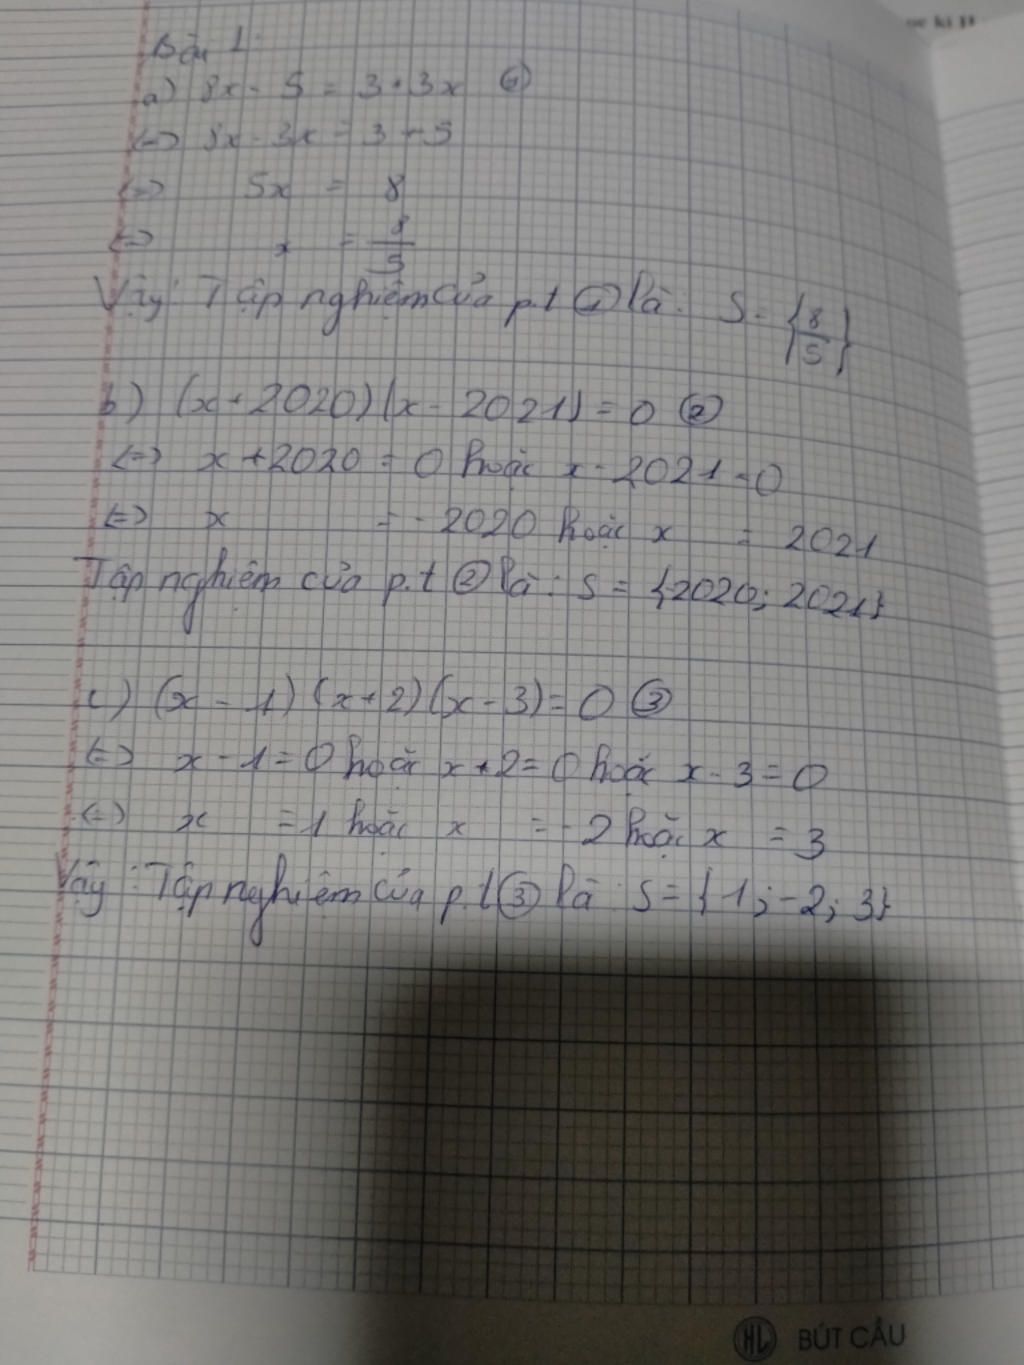 Bài 1:
a) 8x - 5 = 3 + 3x ①
<=> 8x - 3x = 3 + 5
<=> 5x = 8
<=> x = 8/5
Vậy: Tập nghiệm của p.t ① là: S = {8/5}
b) (x + 2020)(x - 2021) = 0 ②
<=> x + 2020 = 0 hoặc x - 2021 = 0
<=> x = -2020 hoặc x = 2021
Tập nghiệm của p.t ② là: S = {-2020; 2021}
c) (x - 1)(x + 2)(x - 3) = 0 ③
<=> x - 1 = 0 hoặc x + 2 = 0 hoặc x - 3 = 0
<=> x = 1 hoặc x = -2 hoặc x = 3
Vậy: Tập nghiệm của p.t ③ là: S = {1; -2; 3}
HL BÚT CẦU